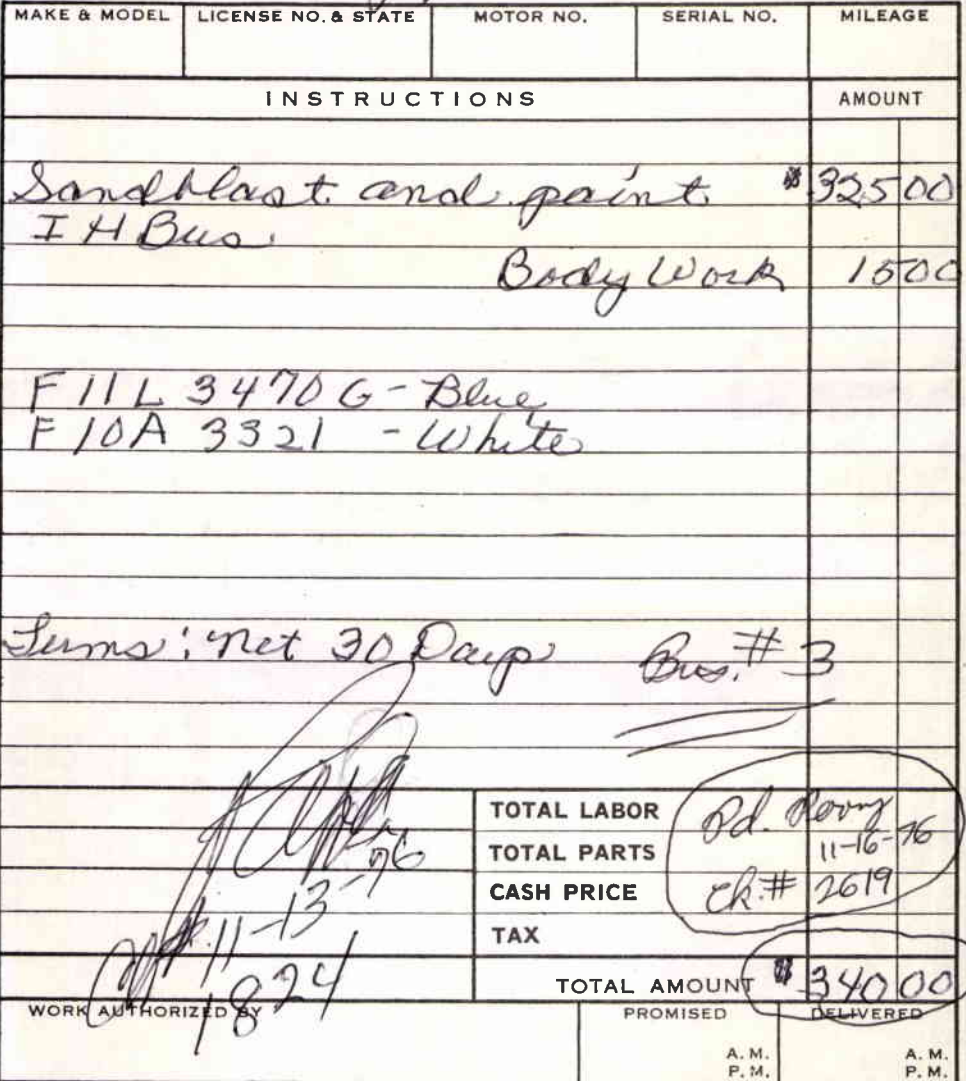 MAKE & MODEL LICENSE NO. & STATE MOTOR NO. SERIAL NO. MILEAGE
INSTRUCTIONS AMOUNT
Sandblast and paint $ 325 00
I H Bus
Body Work 15 00
F 11 L 3470 G - Blue
F 10A 3321 - White
Terms: Net 30 Days Bus. # 3
TOTAL LABOR Pd.
TOTAL PARTS 11-16-76
CASH PRICE Ck. # 2619
TAX
11-13-76
TOTAL AMOUNT $ 340 00
1824
WORK AUTHORIZED BY PROMISED DELIVERED
A. M. A. M.
P. M. P. M.